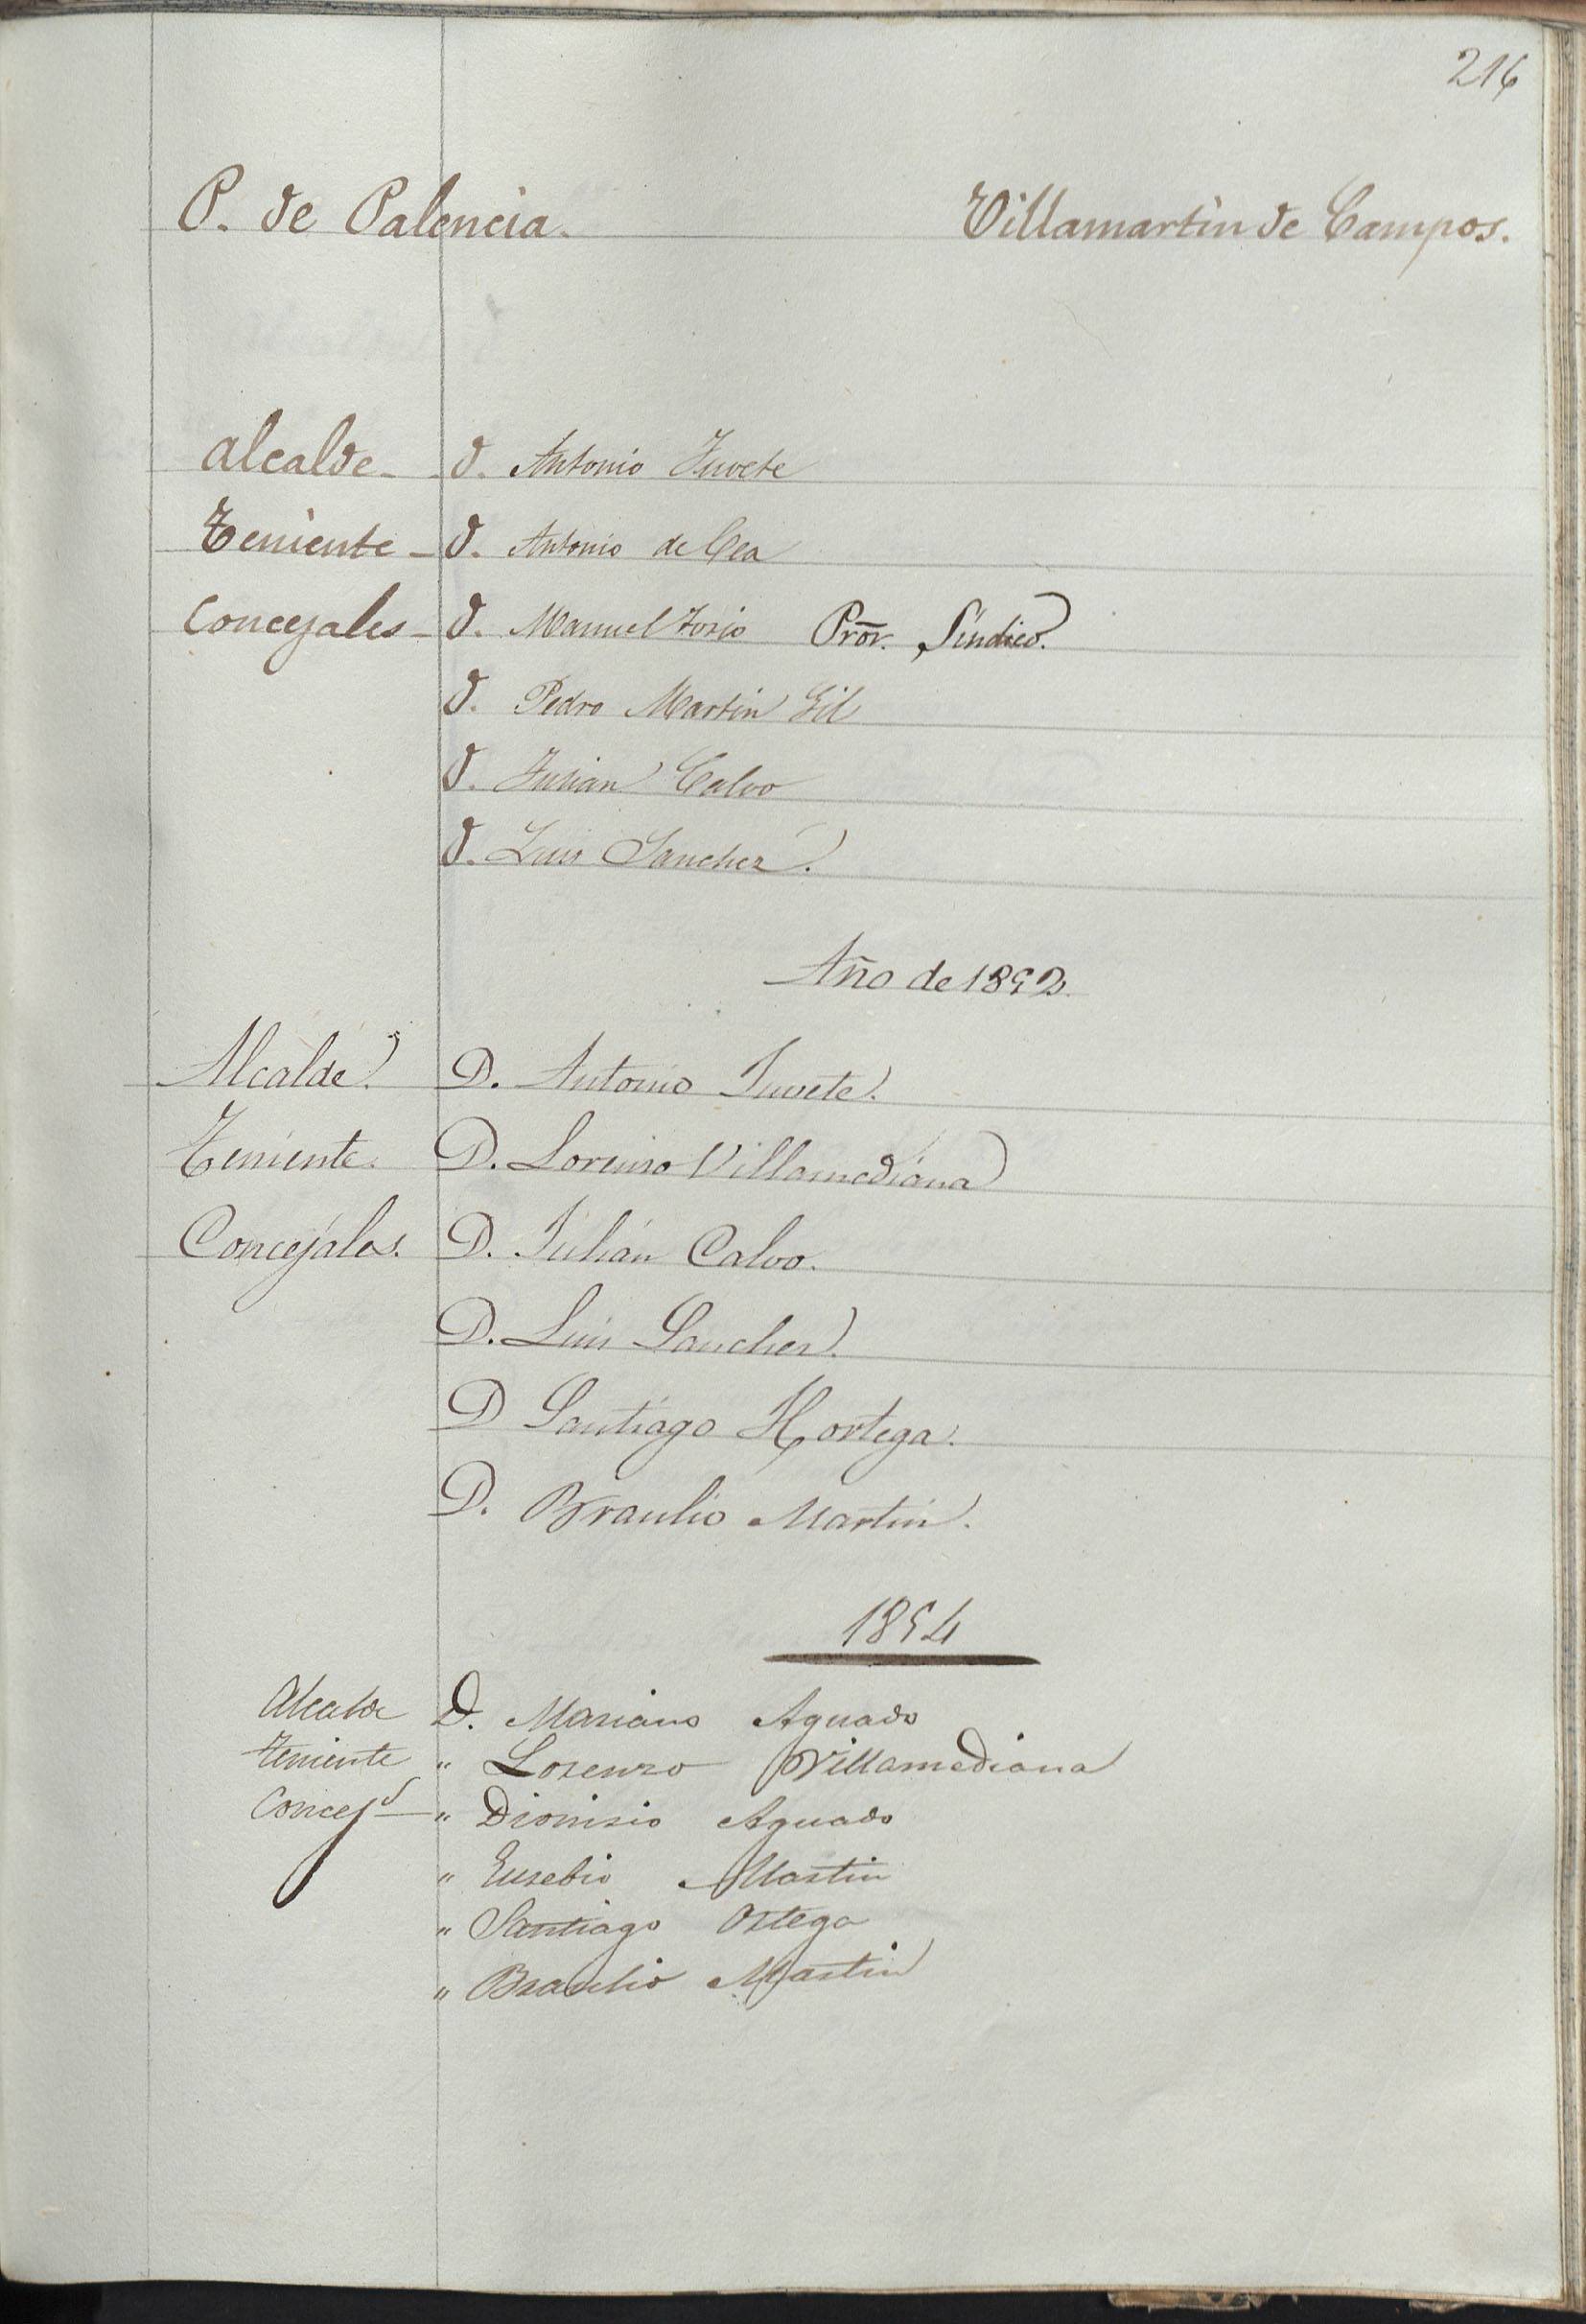 216
P. de Palencia. Villamartin de Campos.
Alcalde - D. Antonio Juvete
Teniente - D. Antonio de Cea
Concejales - D. Manuel Prõr. Síndico.
D. Pedro Martin Gil
D. Julian Calvo
D. Luis Sanchez.
Año de 1852.
Alcalde. D. Antonio Juvete.
Teniente. D. Lorenzo Villamediana
Concejales. D. Julián Calvo.
D. Luis Sanchez.
D Santiago Hortega.
D. Braulio Martin.
1854
Alcalde D. Mariano Aguado
Teniente " Lorenzo Villamediana
Concej.s — " Dionisio Aguado
" Eusebio Martin
" Santiago Ortega
" Braulio Martin